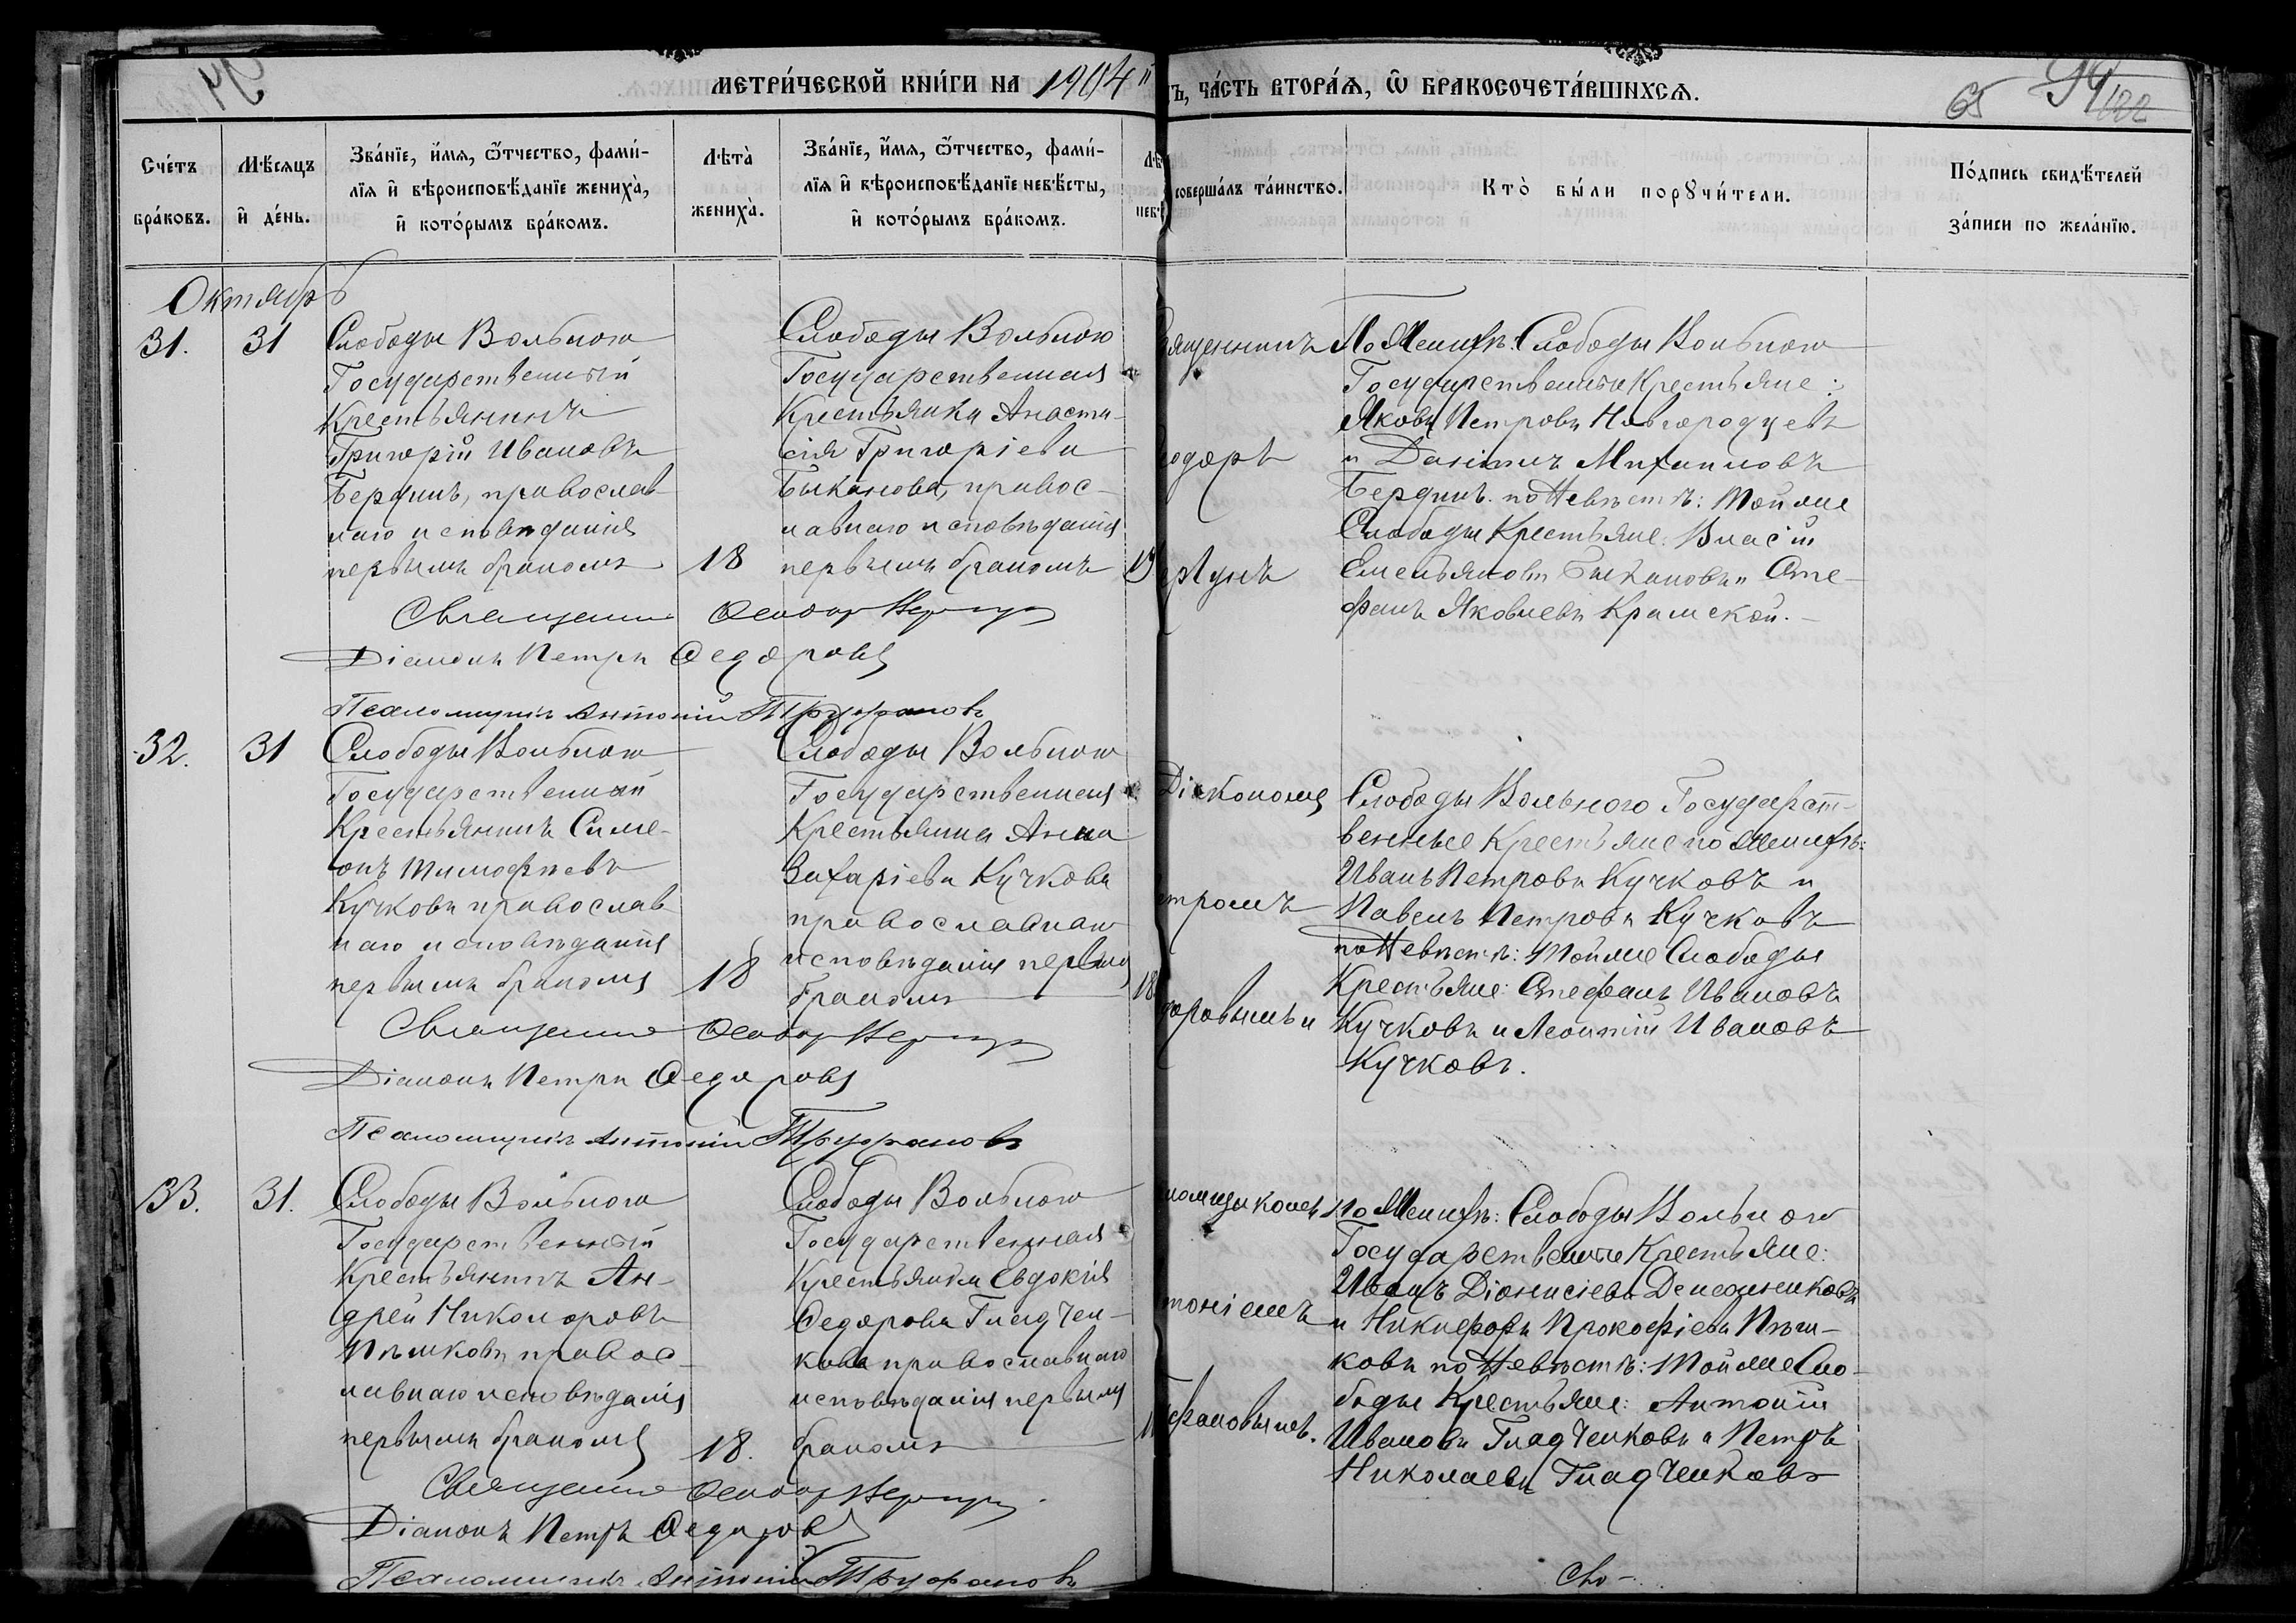 МЕТРИ́ЧЕСКОЙ КНИ́ГИ НА 1904
ТЪ, ЧА́СТЬ ВТОРА́Ѧ, Ѿ БРАКОСОЧЕТА́ВШИХСѦ.
65 94/122
Сче́тъ бра́ковъ.
Мѣ́сяцъ и҆ де́нь.
Зва́нїе, и҆́мѧ, ѻ҆́тчество, фами́-
лїѧ и҆ вѣроисповѣ́данїе жениха̀,
и҆ кото́рымъ бра́комъ.
Лѣта̀
жениха̀.
Зва́нїе, и҆́мѧ, ѻ҆́тчество, фами́-
лїѧ и҆ вѣроисповѣ́данїе невѣ́сты,
и҆ кото́рымъ бра́комъ.
совершáлъ та́инство.
Кто̀ бы́ли порꙋчи́тели.
По́дпись свидѣ́телей
за́писи по жела́нїю.
Октябрь
31. 31
Слободы Вольного
Государственный
Крестьянинъ
Григорій Ивановъ
Бердинъ, православ-
наго исповѣданія
первымъ бракомъ
18
Слободы Вольного
Государственная
Крестьянка Анаста-
сія Григоріева
Быканова, правос-
лавнаго исповѣданія
первымъ бракомъ
19
По Женихѣ: Слободы Вольного
Государственные Крестьяне:
Яковъ Петровъ Новгородцевъ
и Даніилъ Михаиловъ
Бердинъ. по Невѣстѣ: той же
Слободы Крестьяне: Власій
Емельяновъ Быкановъ и Сте-
фанъ Яковлевъ Крамской.
Священникъ Ѳеодоръ
Діаконъ Петръ Ѳедоровъ
Псаломщикъ Антоній Труфановъ
32. 31
Слободы Вольного
Государственный
Крестьянинъ Симе-
онъ Тимофѣевъ
Кучковъ православ-
наго исповѣданія
первымъ бракомъ
18
Слободы Вольного
Государственная
Крестьянка Анна
Захаріева Кучкова
православнаго
исповѣданія первымъ
бракомъ
18
Діакономъ
етромъ
доровымъ и
Слободы Вольного Государст-
венные Крестьяне по Женихѣ:
Иванъ Петровъ Кучковъ и
Павелъ Петровъ Кучковъ
по Невѣстѣ: той же Слободы
Крестьяне: Стефанъ Ивановъ
Кучковъ и Леонтій Ивановъ
Кучковъ.
Священникъ Ѳеодоръ
Діаконъ Петръ Ѳедоровъ
Псаломщикъ Антоній Труфановъ
33. 31.
Слободы Вольного
Государственный
Крестьянинъ Ан-
дрей Никаноровъ
Пѣшковъ, правос-
лавнаго исповѣданія
первымъ бракомъ
18.
Слободы Вольного
Государственная
Крестьянка Евдокія
Ѳедорова Гладчен-
кова православнаго
исповѣданія первымъ
бракомъ
ломщикомъ
тоніемъ
уфановымъ.
По Женихѣ: Слободы Вольного
Государственные Крестьяне:
Иванъ Діонисіевъ
и Никифоръ Прокофіевъ Пѣш-
ковъ по Невѣстѣ: той же Сло-
боды Крестьяне: Антоній
Ивановъ Гладченковъ и Петръ
Николаевъ Гладченковъ
Священникъ Ѳеодоръ
Діаконъ Петръ Ѳедоровъ
Псаломщикъ Антоній Труфановъ